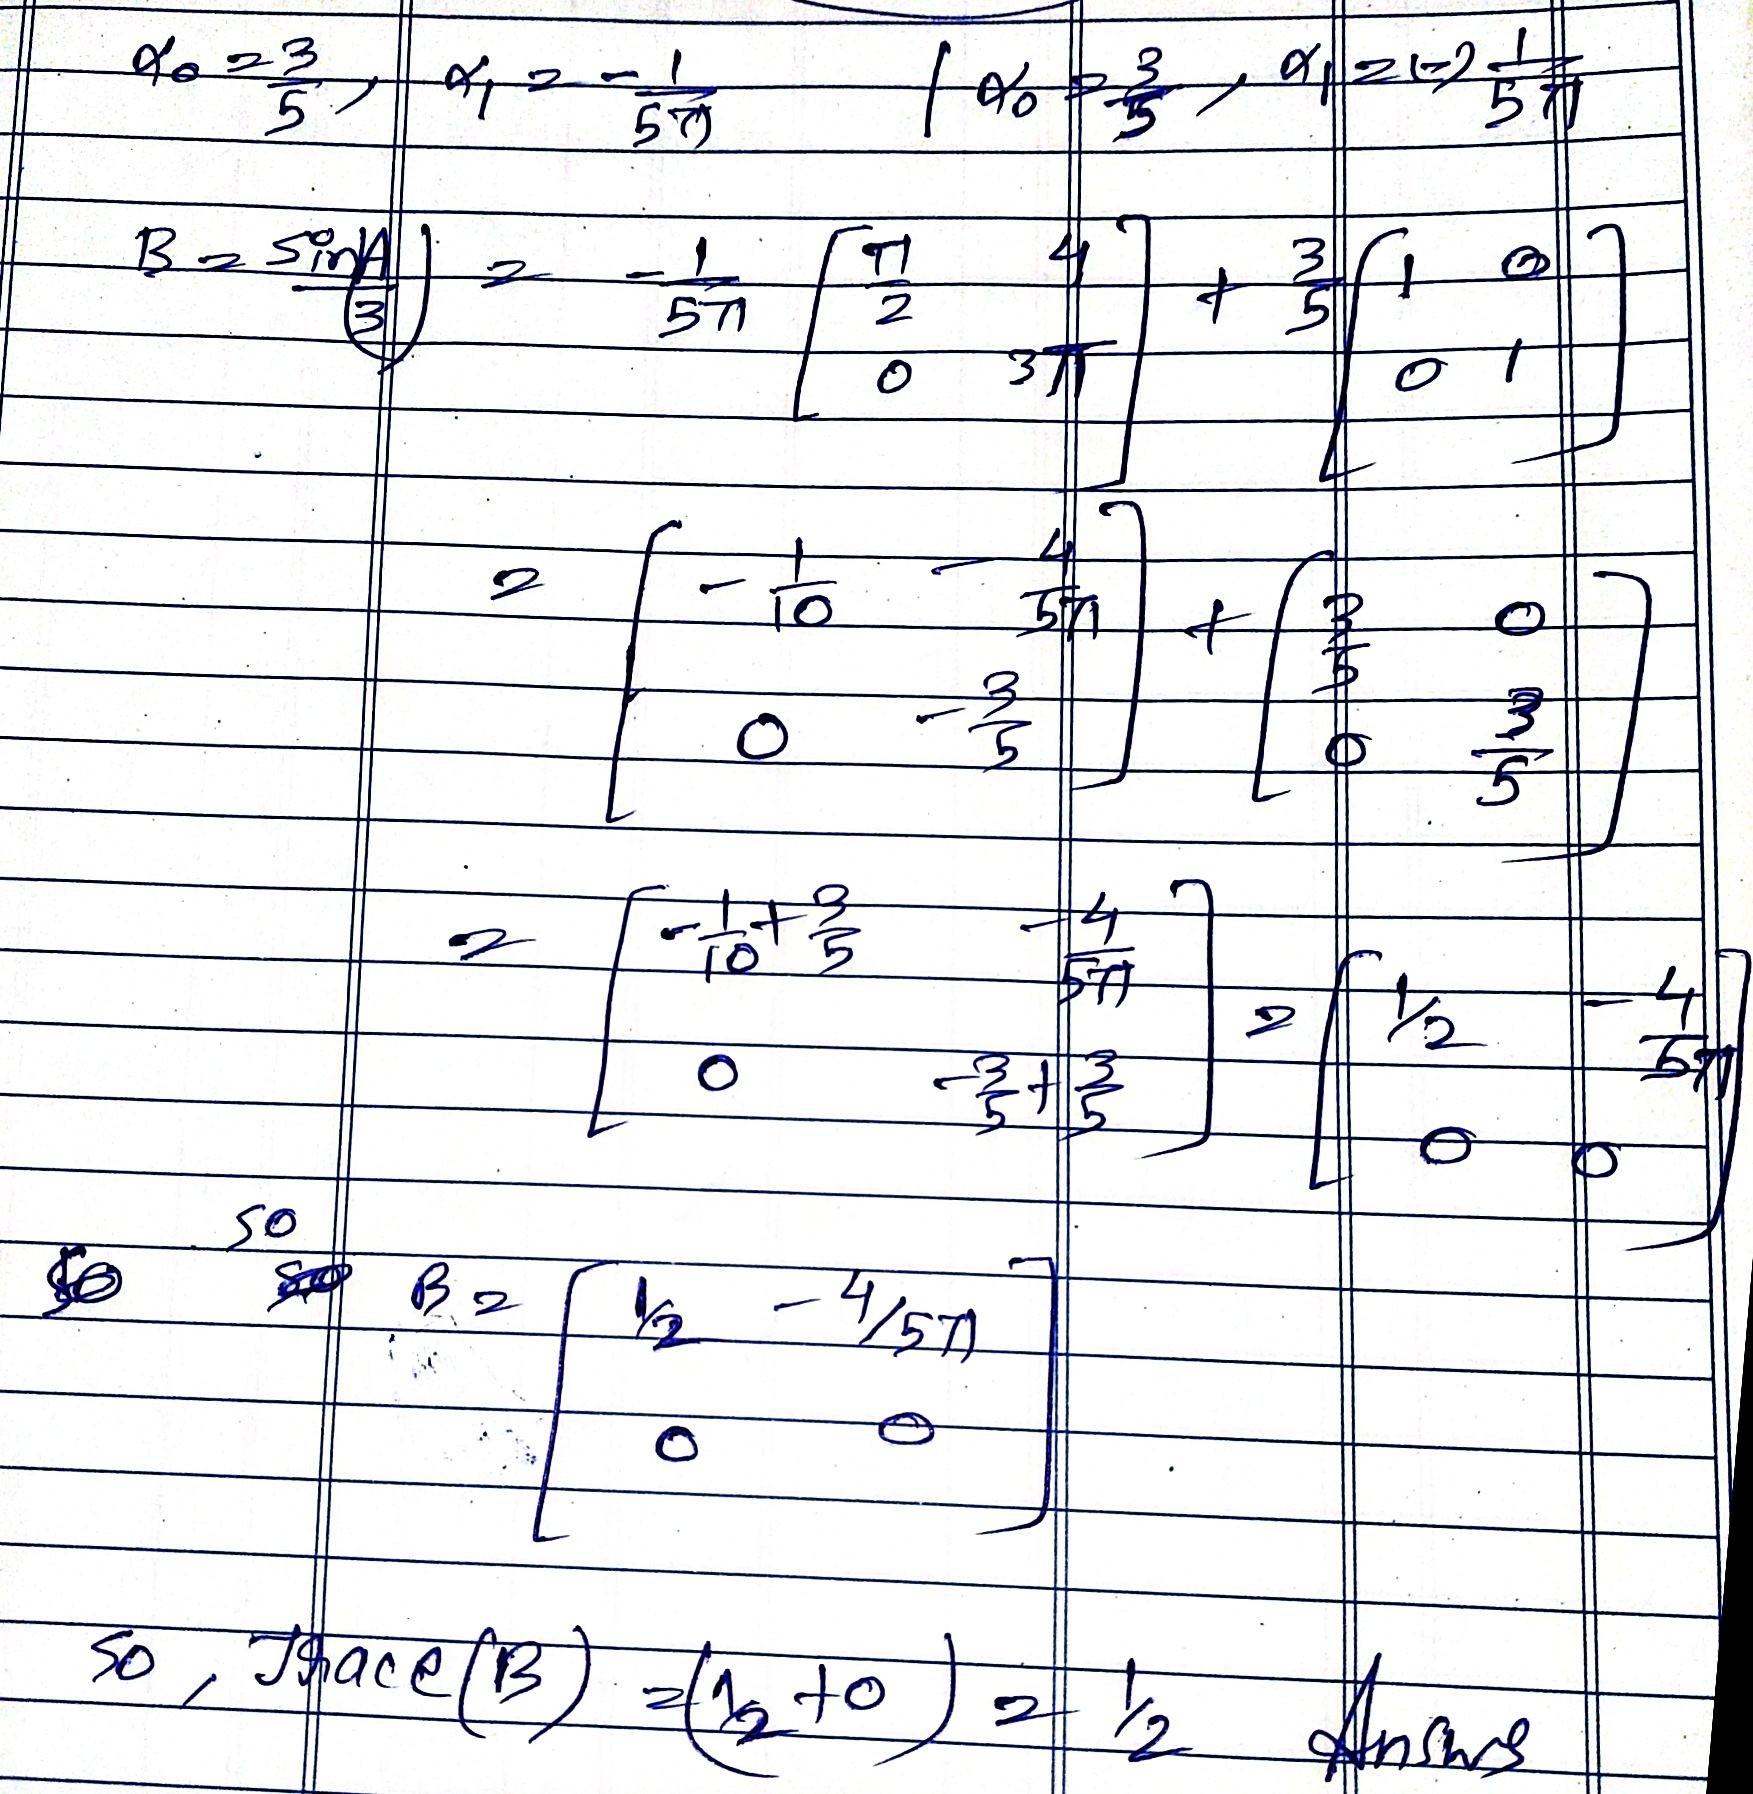 α₀ = 3/5, α₁ = -1/5π | α₀ = 3/5, α₁ = (-) 1/5π
B = sin(A/3) = -1/5π [π/2 4; 0 3π] + 3/5 [1 0; 0 1]
= [-1/10 -4/5π; 0 -3/5] + [3/5 0; 0 3/5]
= [-1/10 + 3/5 -4/5π; 0 -3/5 + 3/5] = [1/2 -4/5π; 0 0]
so B = [1/2 -4/5π; 0 0]
so, Trace(B) = (1/2 + 0) = 1/2 Answs